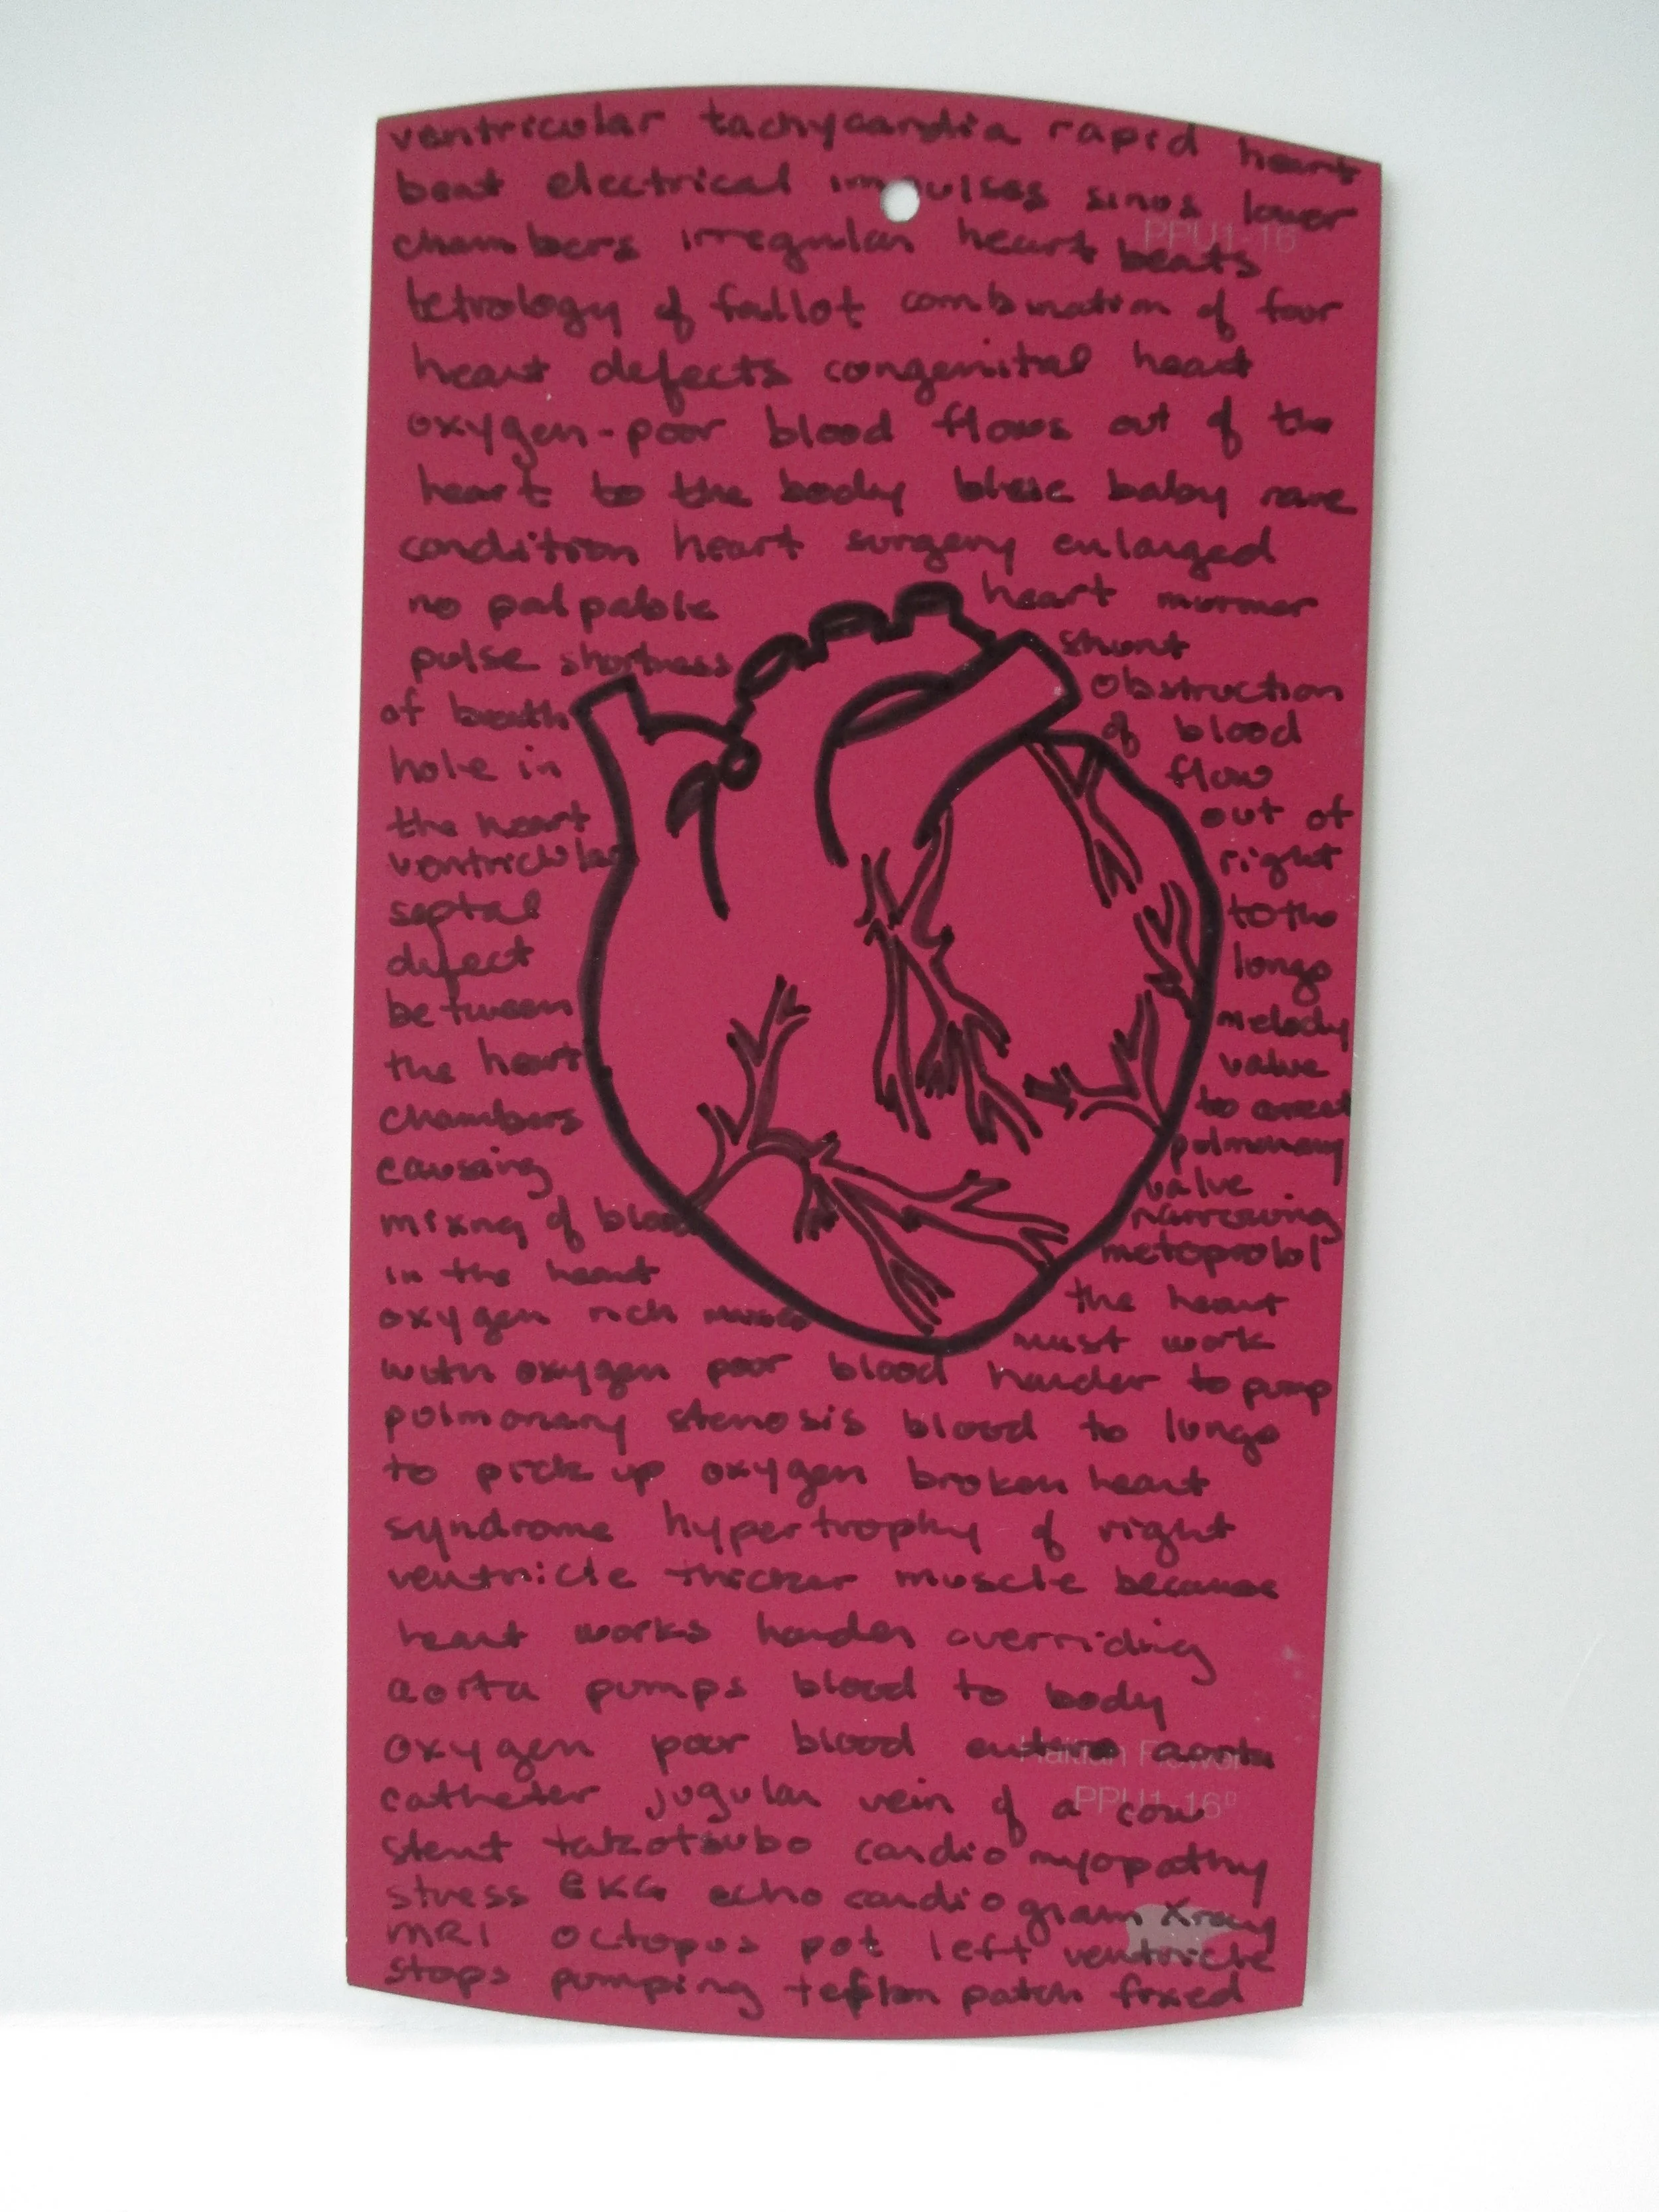 ventricular tachycardia rapid heart
beat electrical impulses sinus lower
chambers irregular heart beats
PPU1-16
tetrology of fallot combination of four
heart defects congenital heart
oxygen-poor blood flows out of the
heart to the body blue baby rare
condition heart surgery enlarged
no palpable
pulse shortness
of breath
hole in
the heart
ventricular
septal
defect
between
the heart
chambers
causing
mixing of blood
in the heart
oxygen rich mixes
heart murmer
shunt
obstruction
of blood
flow
out of
right
to the
lungs
melody
valve
to correct
pulmonary
valve
narrowing
metoprolol
the heart
must work
with oxygen poor blood harder to pump
pulmonary stenosis blood to lungs
to pick up oxygen broken heart
syndrome hypertrophy of right
ventricle thicker muscle because
heart works harder overriding
aorta pumps blood to body
oxygen poor blood enters aorta
Haitian Flower
catheter jugular vein of a cow
PPU1-16
stent takotsubo cardiomyopathy
stress EKG echo cardiogram xray
MRI octopus pot left ventricle
stops pumping teflon patch fixed